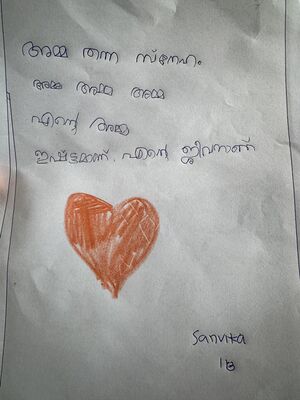 അമ്മ തന്ന സ്നേഹം
അമ്മ അമ്മ അമ്മ
എന്റെ അമ്മ
ഇഷ്ടമാണ്. എന്റെ ജീവനാണ്
Sanvika